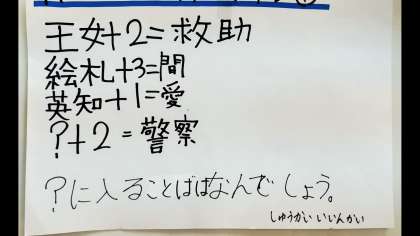 王女+2=救助
絵札+3=間
英知+1=愛
?+2=警察
?に入ることばはなんでしょう。
しゅうかいいいんかい